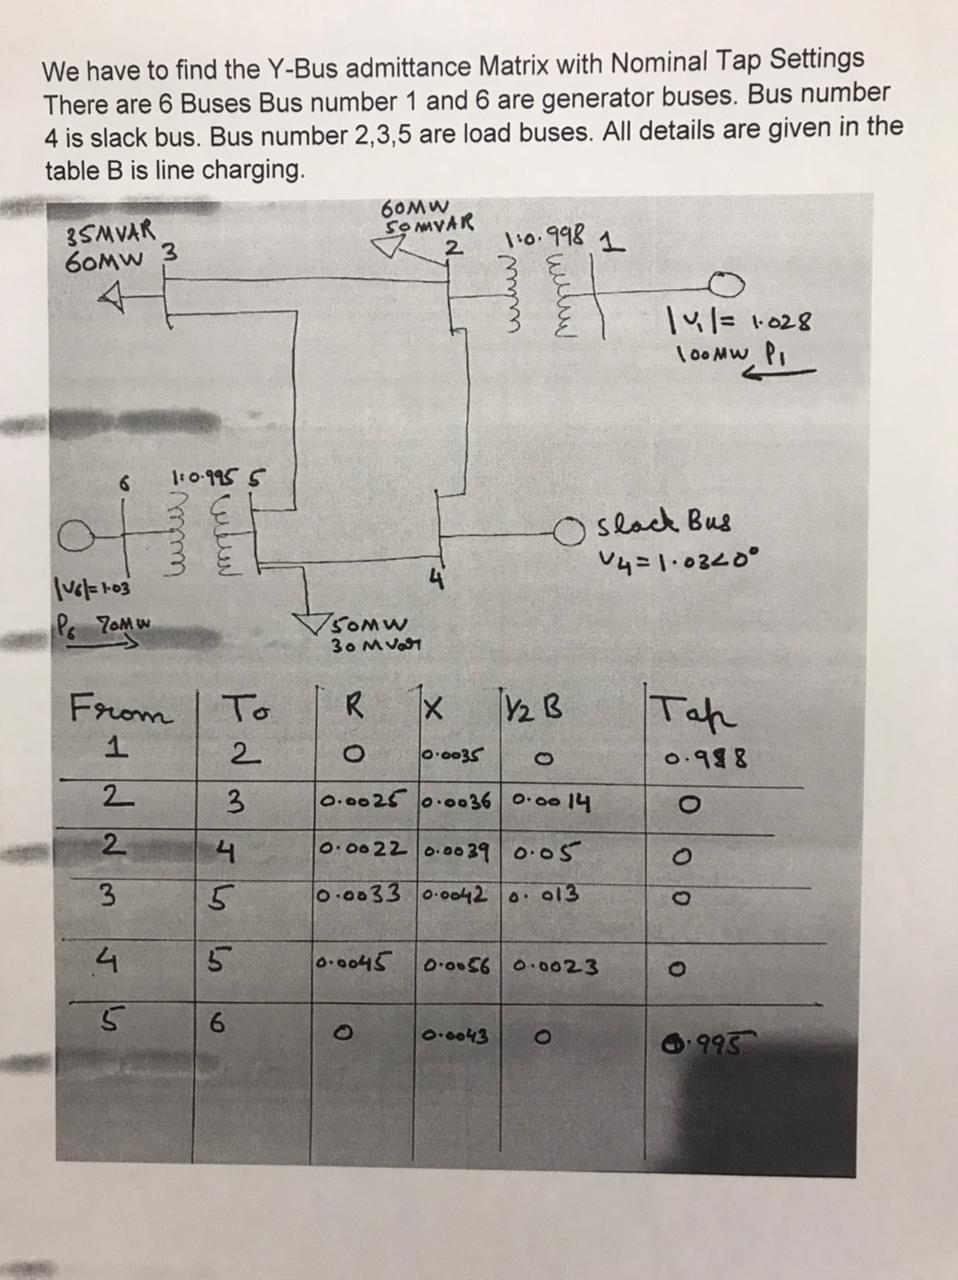 We have to find the Y-Bus admittance Matrix with Nominal Tap Settings
There are 6 Buses Bus number 1 and 6 are generator buses. Bus number
4 is slack bus. Bus number 2,3,5 are load buses. All details are given in the
table B is line charging.
60MW
50MVAR
2
35MVAR
60MW 3
1:0.998 1
|V1|= 1.028
100MW P1
6 1:0.995 5
Slack Bus
V4=1.03∠0°
|V6|=1.03
P6 70MW
4
50MW
30 MVar
From To R X 1/2 B Tap
1 2 0 0.0035 0 0.998
2 3 0.0025 0.0036 0.0014 0
2 4 0.0022 0.0039 0.05 0
3 5 0.0033 0.0042 0.013 0
4 5 0.0045 0.0056 0.0023 0
5 6 0 0.0043 0 0.995